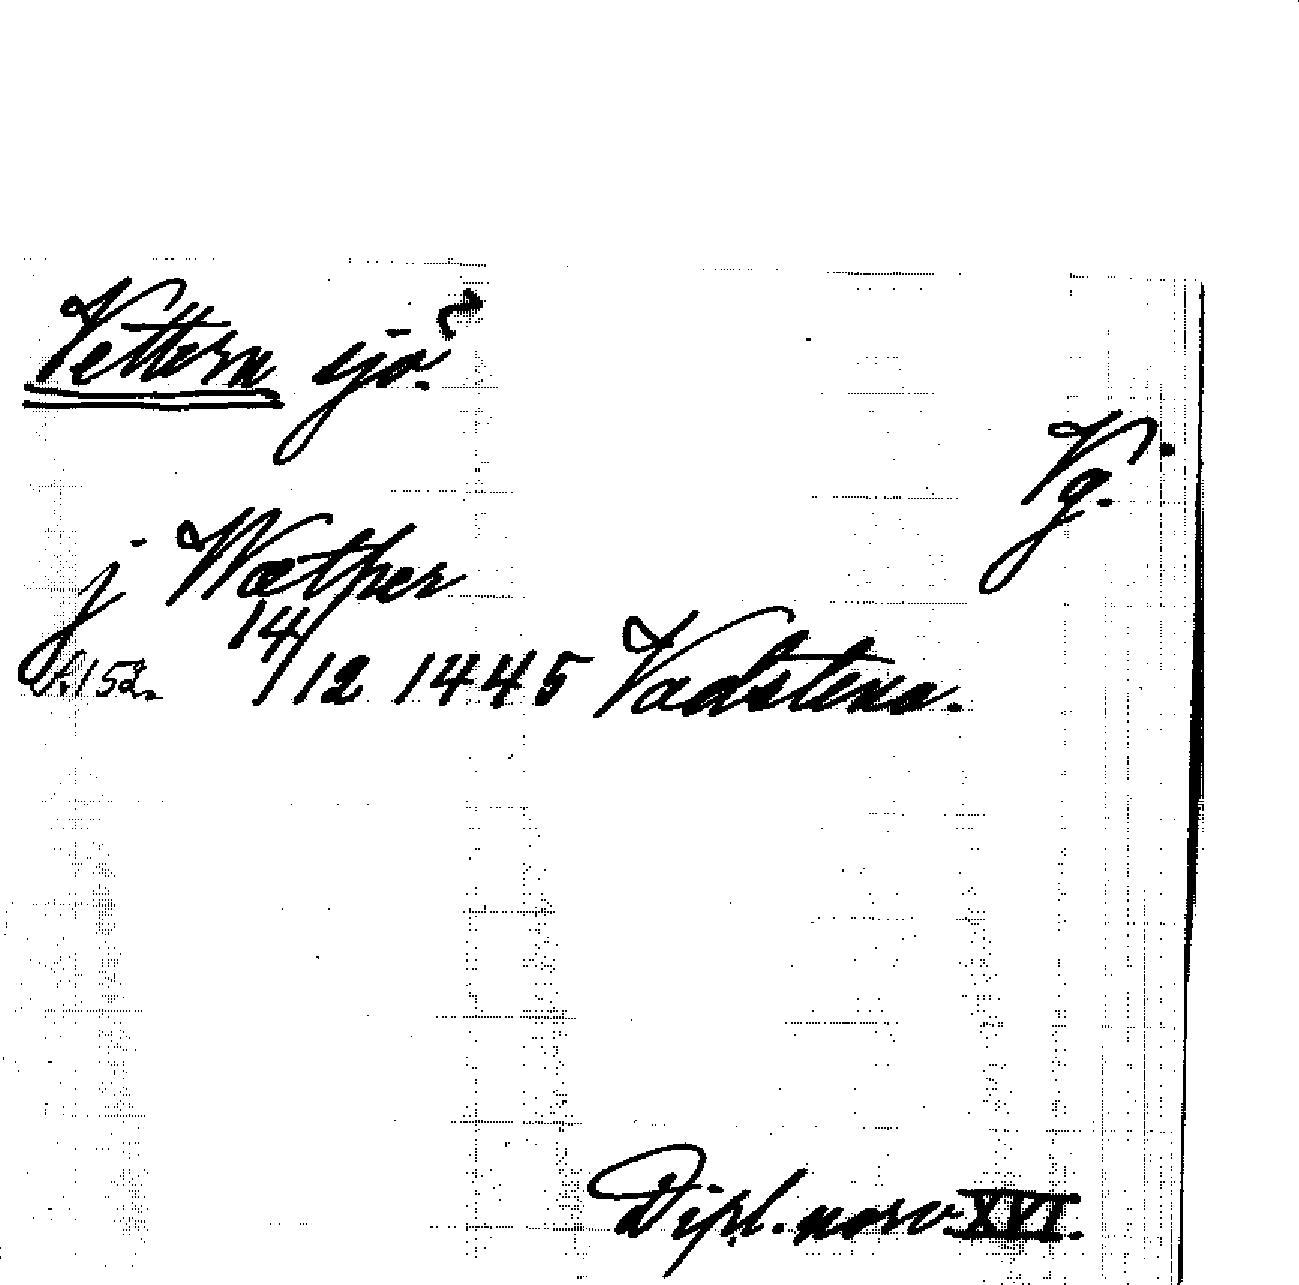 Vettern sjö.
Vg.
j Wæther
14/12 1445 Vadstena.
s. 152.
Dipl. norv. XVI.